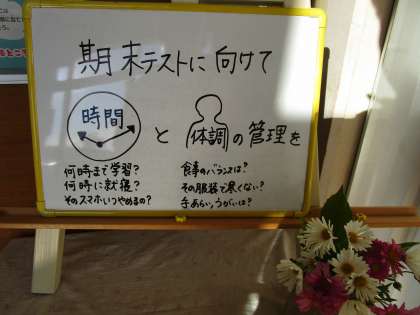 期末テストに向けて
時間と体調の管理を
何時まで学習?
何時に就寝?
そのスマホいつやめるの?
食事のバランスは?
その服装で寒くない?
手あらい,うがいは?